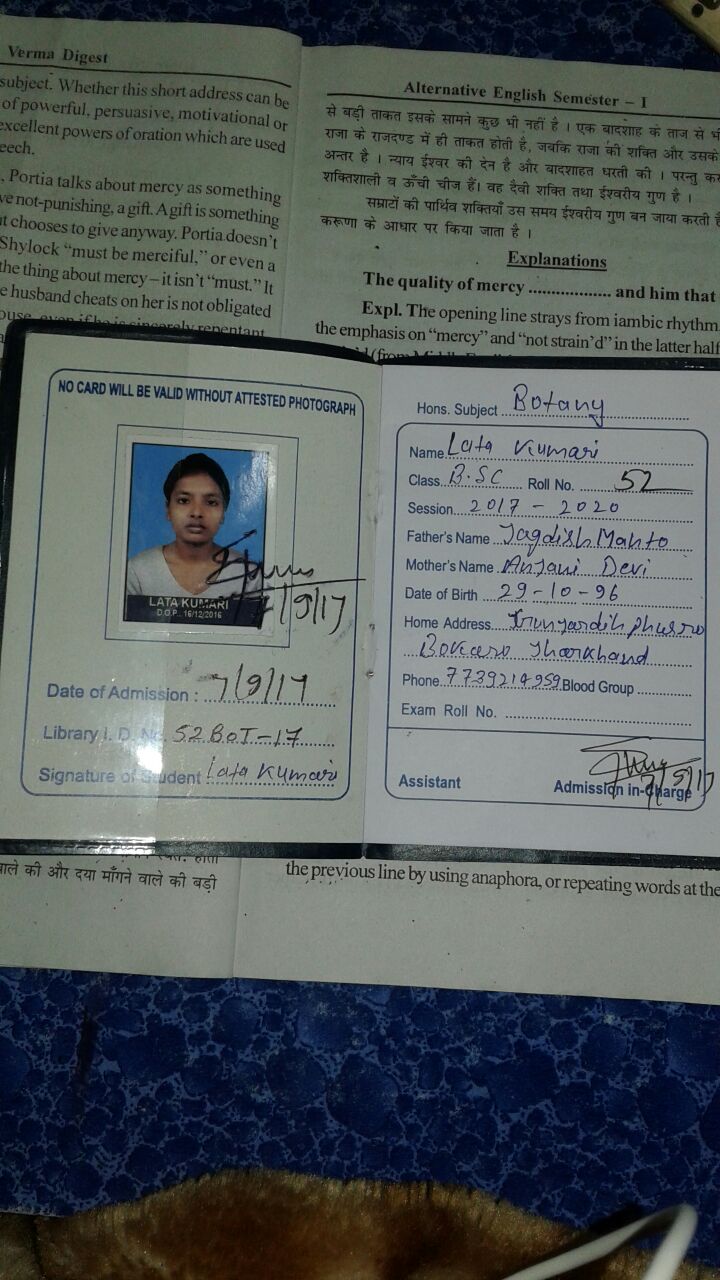 Verma Digest
subject. Whether this short address can be
of powerful, persuasive, motivational or
excellent powers of oration which are used
eech.
, Portia talks about mercy as something
ve not-punishing, a gift. A gift is something
t chooses to give anyway. Portia doesn't
Shylock “must be merciful,” or even a
the thing about mercy – it isn't “must.” It
e husband cheats on her is not obligated
ouse, even if he is sincerely repentant
Alternative English Semester – I
से बड़ी ताकत इसके सामने कुछ भी नहीं है । एक बादशाह के ताज से भी
राजा के राजदण्ड में ही ताकत होती है, जबकि राजा की शक्ति और उसके
अन्तर है । न्याय ईश्वर की देन है और बादशाहत धरती की । परन्तु
शक्तिशाली व ऊँची चीज हैं। वह दैवी शक्ति तथा ईश्वरीय गुण है ।
सम्राटों की पार्थिव शक्तियाँ उस समय ईश्वरीय गुण बन जाया करती
करूणा के आधार पर किया जाता है ।
Explanations
The quality of mercy .................. and him that
Expl. The opening line strays from iambic rhythm
the emphasis on “mercy” and “not strain'd” in the latter half
NO CARD WILL BE VALID WITHOUT ATTESTED PHOTOGRAPH
LATA KUMARI
D.O.P.: 16/12/2016
7/9/17
Date of Admission : 7/9/17
Library I. D. No. 52 BOT-17
Signature of Student Lata Kumari
Hons. Subject Botany
Name Lata Kumari
Class B.SC Roll No. 52
Session 2017 - 2020
Father's Name Jagdish Mahto
Mother's Name Anjani Devi
Date of Birth 29-10-96
Home Address phusro
Bokaro Jharkhand
Phone 7739214959 Blood Group
Exam Roll No.
7/9/17
Assistant Admission in-Charge
वाले की और दया माँगने वाले की बड़ी
the previous line by using anaphora, or repeating words at the